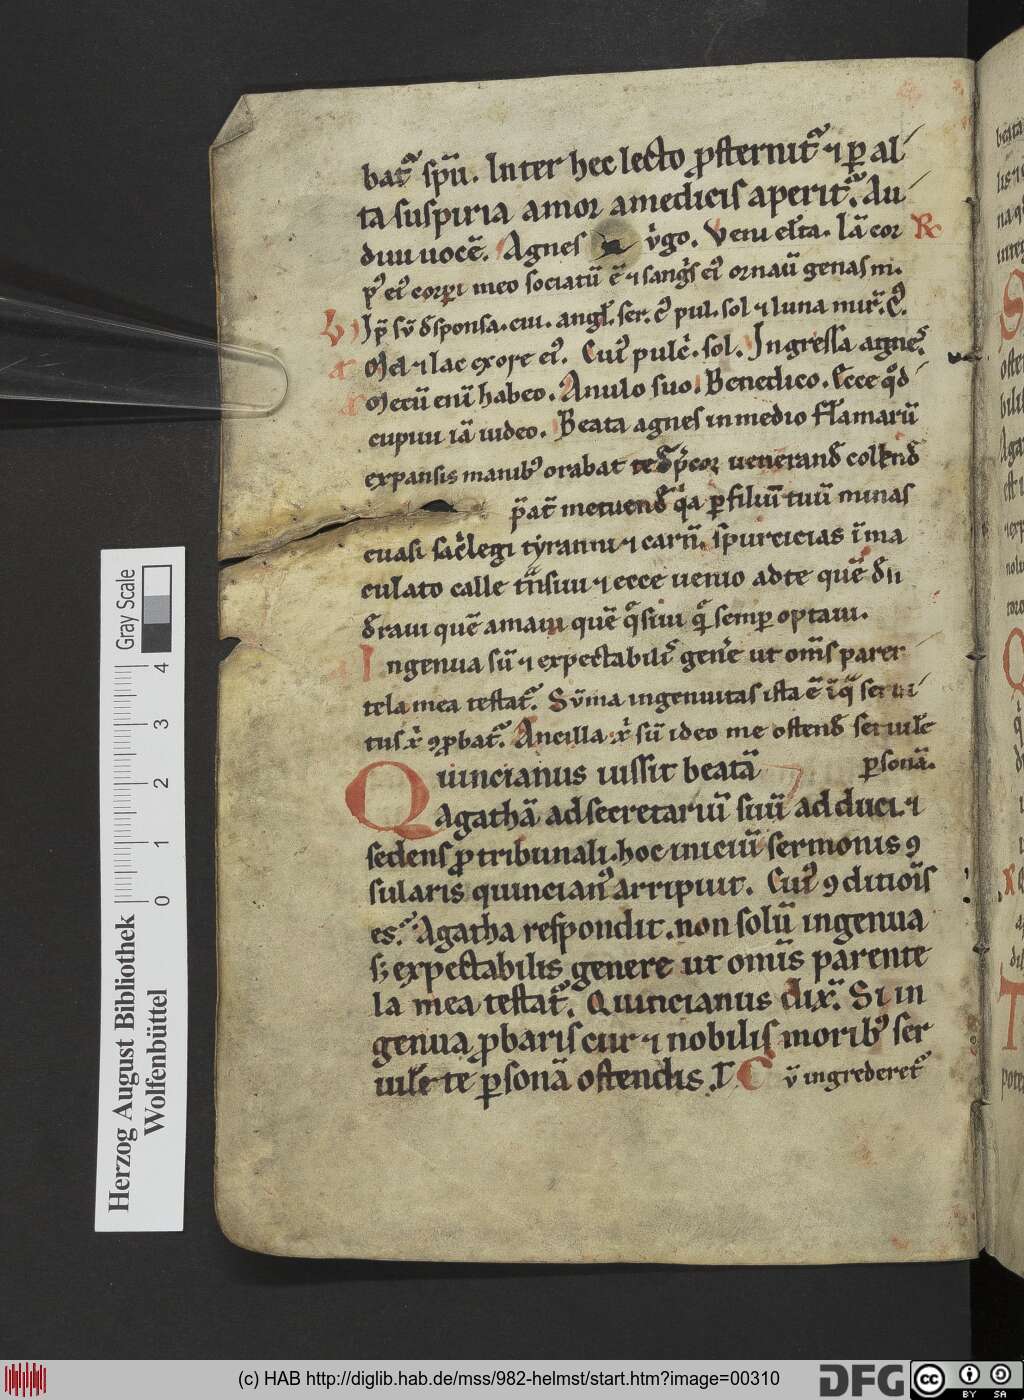 bat᷑ sp̄u. Inter hec lecto ꝓsternit᷑ ⁊ ꝑ al
ta suspiria amor amedicis aperit᷑. Au
diui uocē. Agnes v̓go. Veni el̄ta. Iā cor R̶
ei᷒ corꝑi meo sociatū ē ⁊ sang̓s ei᷒ ornau̅ genas m.
V Ip̄ sū d̄sponsa. cui. angl̄. ser. c᷒ pul. sol ⁊ luna mir̄.
Mel ⁊ lac ex ore ei᷒. Cui᷒ pulc̓. sol. Ingressa agnes.
Mecū enī habeo. Anulo suo. Benedico. Ecce qͦd
cupiui iā uideo. Beata agnes in medio flamarū
expansis manib᷒ orabat te d̄p̄cor uenerand̄ colend̄
p̄at᷑ metuend̄ q̓a ꝑ filiū tuū minas
euasi sac̓legi tyranni ⁊ carn̄. spurcicias īma
culato calle t̄nsiui ⁊ ecce uenio ad te quē
quē amaui quē q̄siui semꝑ optaui.
Ingenua sū ⁊ expectabilis gen̓e ut om̄s paren
tela mea testat᷑. Sūma ingenuitas ista ē ī q̄ serui
tus x̓ ꝯprobat᷑. Ancilla x̓ sū ideo me ostend̄ seruilē
ꝑsonā.
Quincianus iussit beatā
Agathā ad secretariū suū adduci. ⁊
sedens ꝓ tribunali. hoc iniciū sermonis ꝯ
sularis quincian᷒ arripuit. Cui᷒ ꝯditiōis
es. Agatha respondit. non solū ingenua
sꝫ expectabilis genere ut om̄is parente
la mea testat᷑. Quincianus dix̄. Si in
genua ꝓbaris cur ⁊ nobilis morib᷒ ser
uilē te ꝑsonā ostendis. T. C v̄ ingrederet᷑
Gray Scale
4
3
2
1
0
Herzog August Bibliothek
Wolfenbüttel
(c) HAB http://diglib.hab.de/mss/982-helmst/start.htm?image=00310
DFG
cc
BY SA